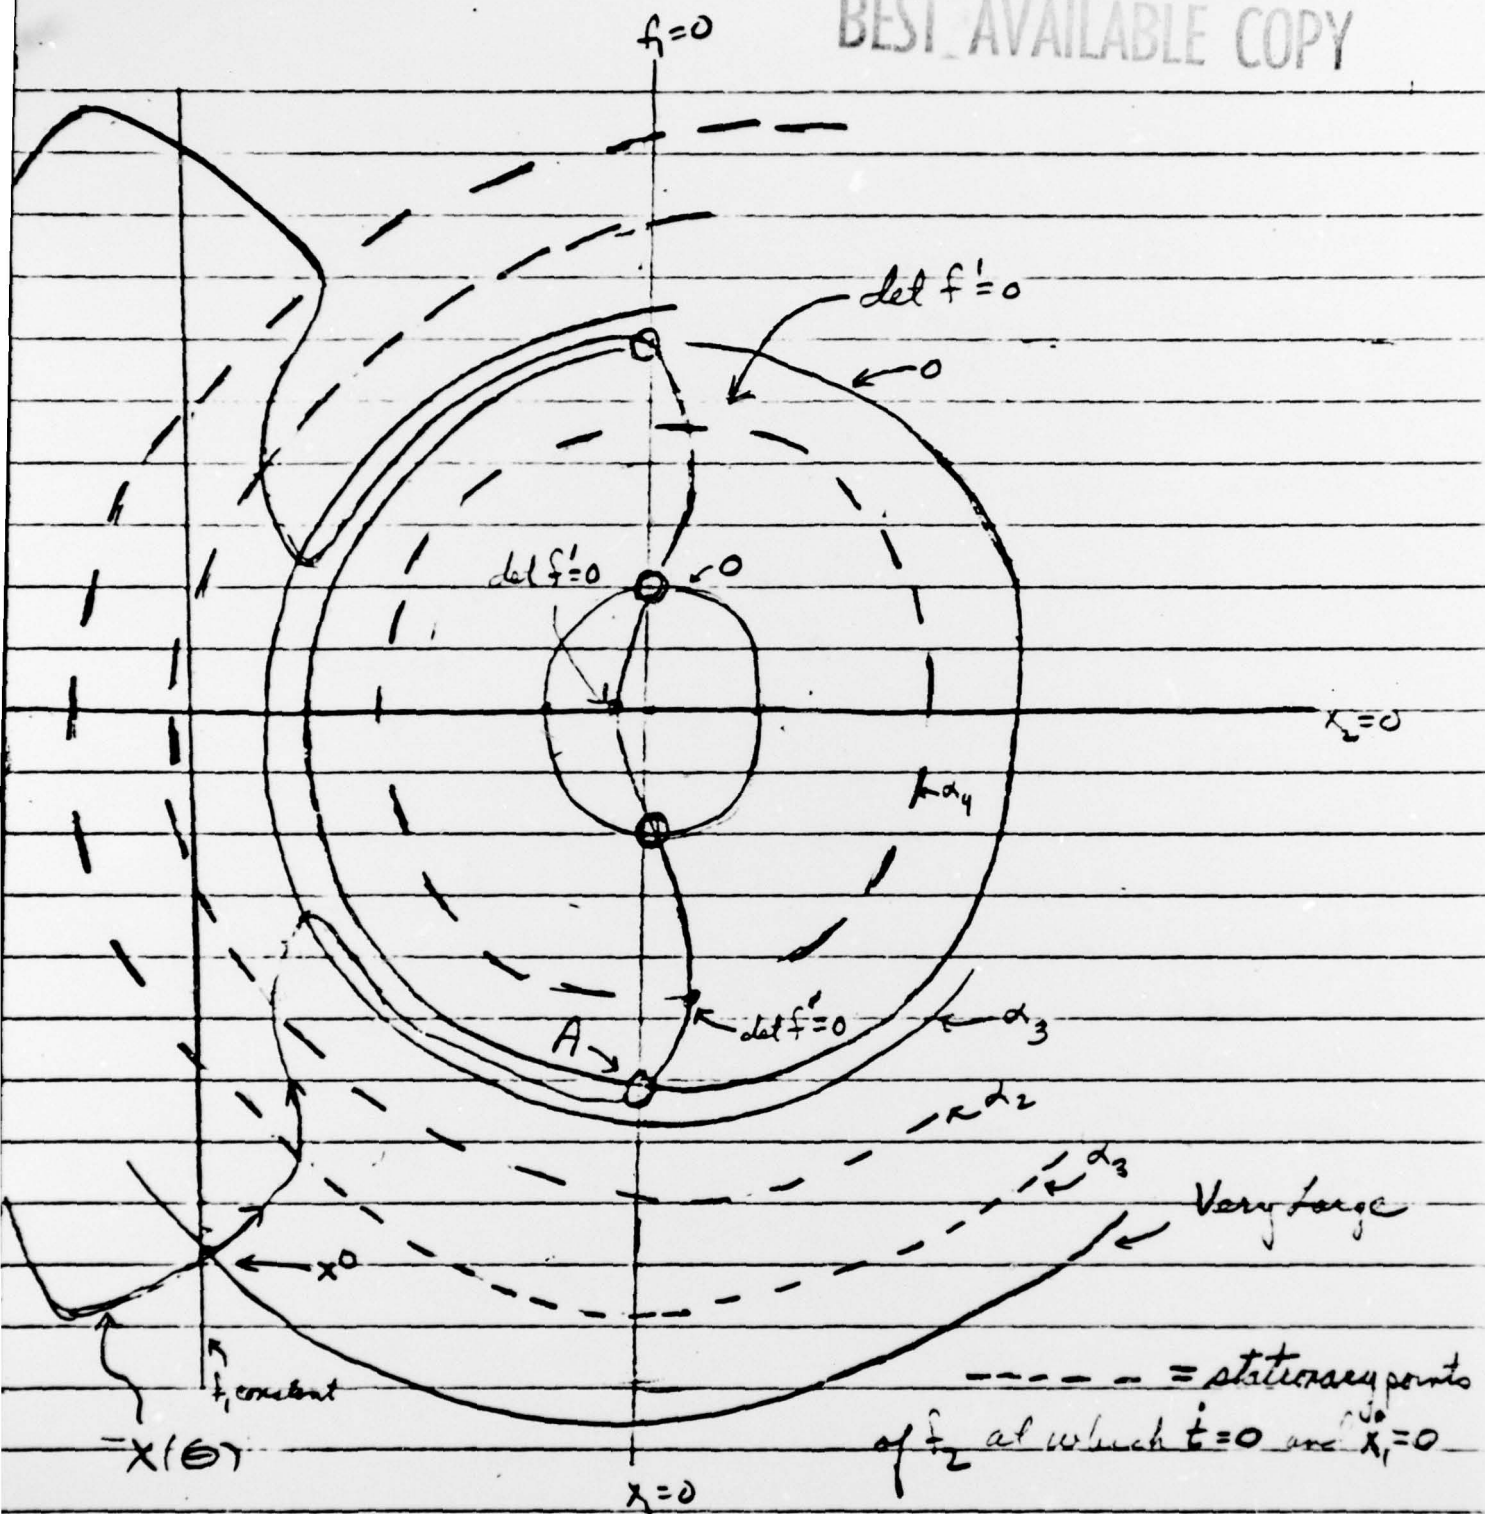 BEST AVAILABLE COPY
f₁=0
det f'=0
0
det f'=0
0
x₂=0
α₄
A
det f'=0
α₃
α₂
α₃
Very Large
x⁰
f₁ constant
= stationary points
of f₂ at which ṫ=0 and ẋ₁=0
x(θ)
x₁=0